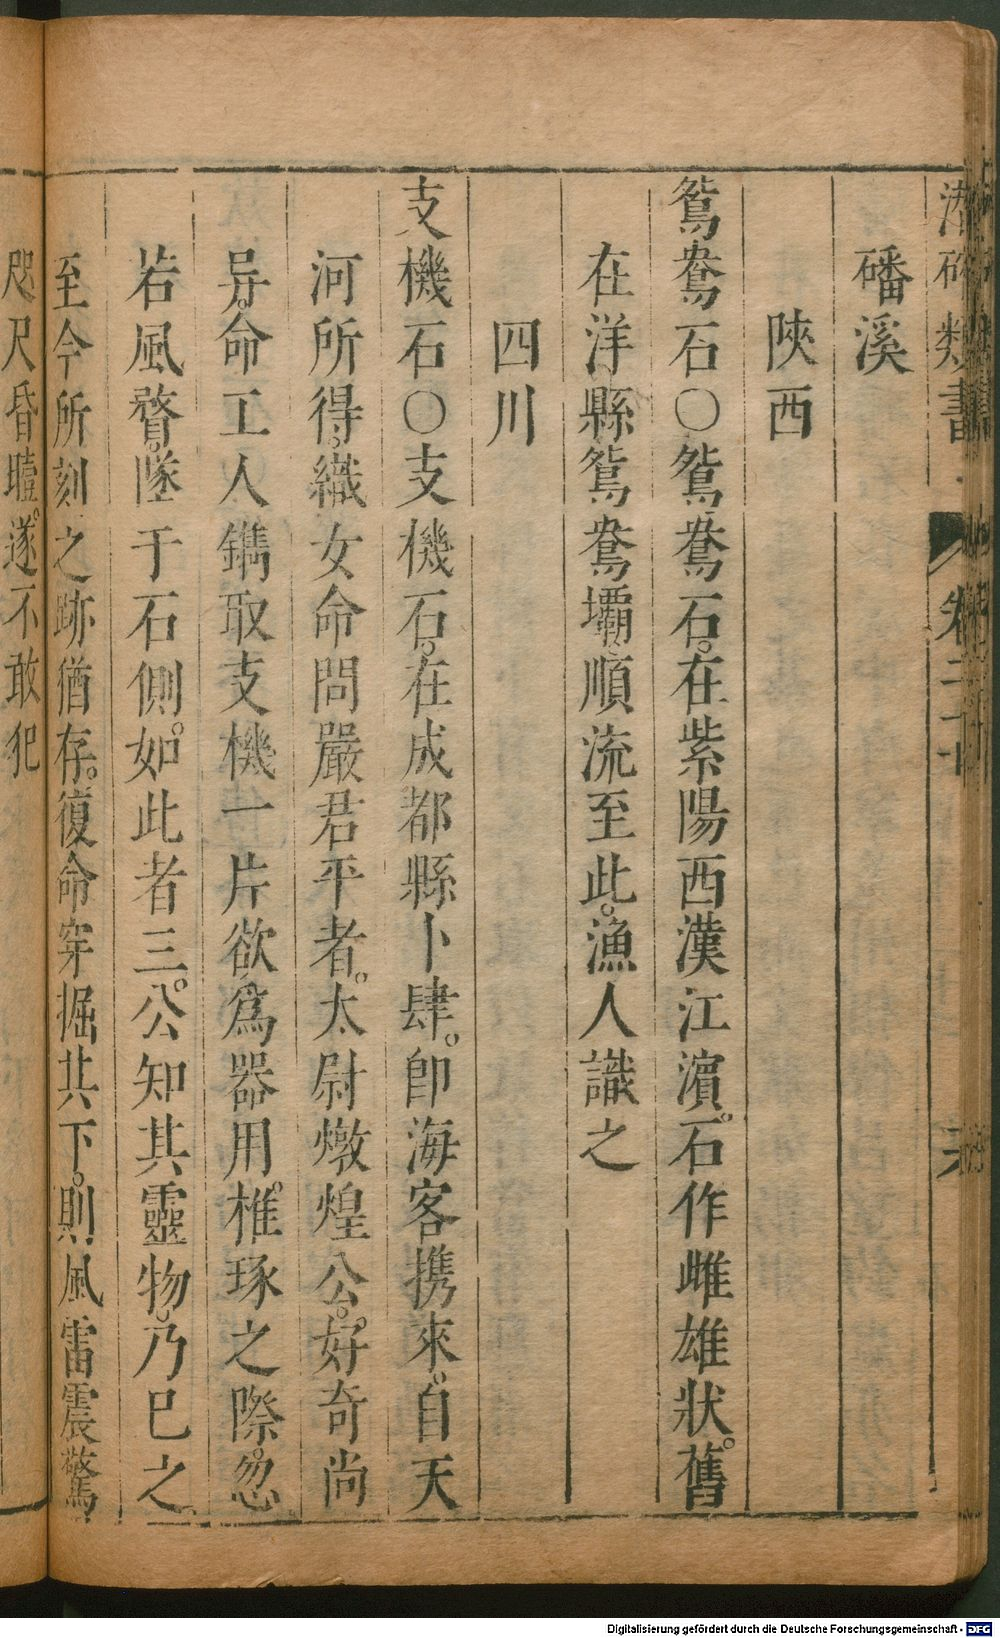 潛確類書 卷三十
磻溪
陝西
鴛鴦石○鴛鴦石。在紫陽西漢江濱。石作雌雄狀。舊
在洋縣鴛鴦壩。順流至此。漁人識之
四川
支機石○支機石。在成都縣卜肆。卽海客携來。自天
河所得。織女命問嚴君平者。太尉燉煌公。好奇尚
异。命工人鐫取支機一片欲爲器用。椎琢之際。忽
若風瞀。墜于石側。如此者三。公知其靈物。乃巳之。
至今所刻之跡猶存。復命穿掘共下。則風雷震驚
咫尺昏曀。遂不敢犯
Digitalisierung gefördert durch die Deutsche Forschungsgemeinschaft - DFG